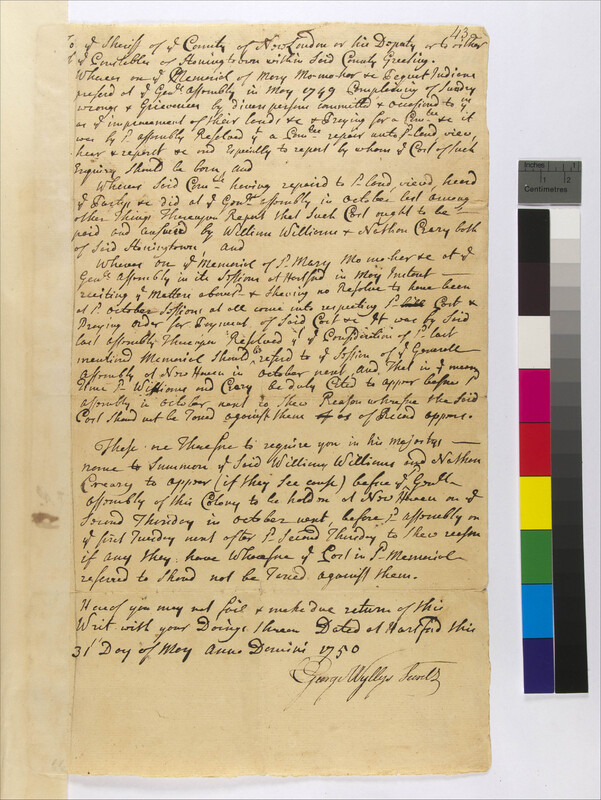 43
To yͤ Sheriff of yͤ County of New London or his Deputy or to either
of yͤ Constables of Stoningtown within Said County Greeting.
Whereas on yͤ Memorial of Mary Mo-mo-hor &c Pequit Indians
prefer'd at yͤ Genˡˡ Assembly in May 1749 Complaining of Sundry
wrongs & Grievences by divers persons committed & occasiond to yᵐ
as yͤ impairment of their land &c & Praying for a Comᵗᵉᵉ &c it
was by Sᵈ assembly Resolved yᵗ a Comᵗᵉᵉ repair unto Sᵈ land view,
hear & report &c and Especially to report by whom yͤ Cost of Such
Inquiry Should be born, and
Whereas Said Comᵗᵉᵉ having repaird to Sᵈ land, viewd, heard
yͤ Partys &c did at yͤ Genˡˡ assembly in October last among
other Things Thereupon Report that Such Cost ought to be
paid and answered by William Williams & Nathan Crary both
of Said Stoningtown, and
Whereas on yͤ Memorial of Sᵈ Mary Mo mo-hor &c at yͤ
Genˡˡ assembly in its Sessions at Hartford in May Instant
reciting yͤ Matters aboveSᵈ & Shewing no Resolve to have been
at Sᵈ October Sessions at all come into respecting Sᵈ Cost &
Praying order for Payment of Said Cost &c It was by Said
last assembly Thereupon Resolved yᵗ yͤ Consideration of Sᵈ last
mentiond Memorial Should be referd to yͤ Session of yͤ Generall
Assembly at New Haven in October next, and That in yͤ mean
time Sᵈ Williams and Crary be duly Cited to appear before Sᵈ
assembly in October next to Shew Reason wherefore the Said
Cost Should not be Taxed against them as of Record appears.
These are Therefore to require you in his majestys
name to Summon yͤ Said William Williams and Nathan
Creary to appear (if they See cause) before yͤ Genˡˡ
Assembly of this Colony to be holden at New Haven on yͤ
Second Thursday in October next, before Sᵈ assembly on
yͤ first Tuesday next after Sᵈ Second Thursday to Shew reason
if any they have Wherefore yͤ Cost in Sᵈ Memorial
referred to Should not be Taxed against them.
Hereof you may not fail & make due return of this
Writ with your Doings thereon Dated at Hartford this
31ˢᵗ Day of May Anno Domini 1750
George Wyllys Secretʳʸ
inches 1
1 2
Centimetres